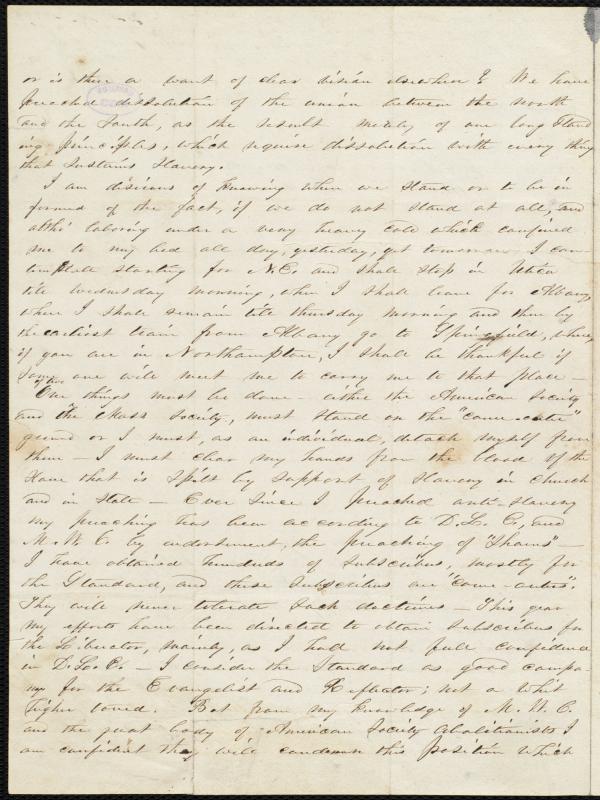 or is there a want of clear vision elsewhere? We have
preached dissolution of the union between the north
and the South, as the result merely of our long stand
ing principles, which require dissolution with every thing
that sustains Slavery.
I am desirous of knowing where we stand or to be in
formed of the fact, if we do not stand at all, and
altho' laboring under a very heavy cold which confined
me to my bed all day, yesterday, yet tomorrow I con
template starting for N.E. and shall stop in Utica
till wednesday morning, when I shall leave for Albany,
where I shall remain till thursday morning and then by
the earliest train from Albany go to Springfield, where,
if you are in Northampton, I shall be thankful if
some one will meet me to carry me to that place —
One of two things must be done — either the American Society
and the Mass Society, must stand on the "come-outer"
ground or I must, as an individual, detach myself from
them — I must clear my hands from the blood of the
Slave that is spilt by support of Slavery in church
and in State — Ever since I preached anti-slavery
my preaching has been according to D.L.C., and
M.W.C by endorsement, the preaching of "Shams" —
I have obtained hundreds of subscribers, mostly for
the Standard, and these subscribers are "come-outers".
They will never tolerate such doctrines — This year
my efforts have been directed to obtain subscribers for
the Liberator, mainly, as I had not full confidence
in D.L.C. — I consider the Standard as good compa-
ny for the Evangelist and Reflector; not a whit
higher toned. But from my knowledge of M.W.C.
and the great body of American Society abolitionists I
am confident they will condemn this position which